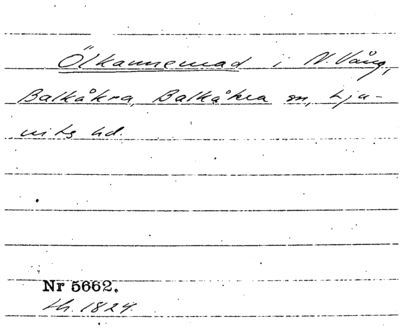 Ölkannemad i N. Vång,
Balkåkra, Balkåkra sn, Lju-
nits hd.
Nr 5662.
th. 1824.